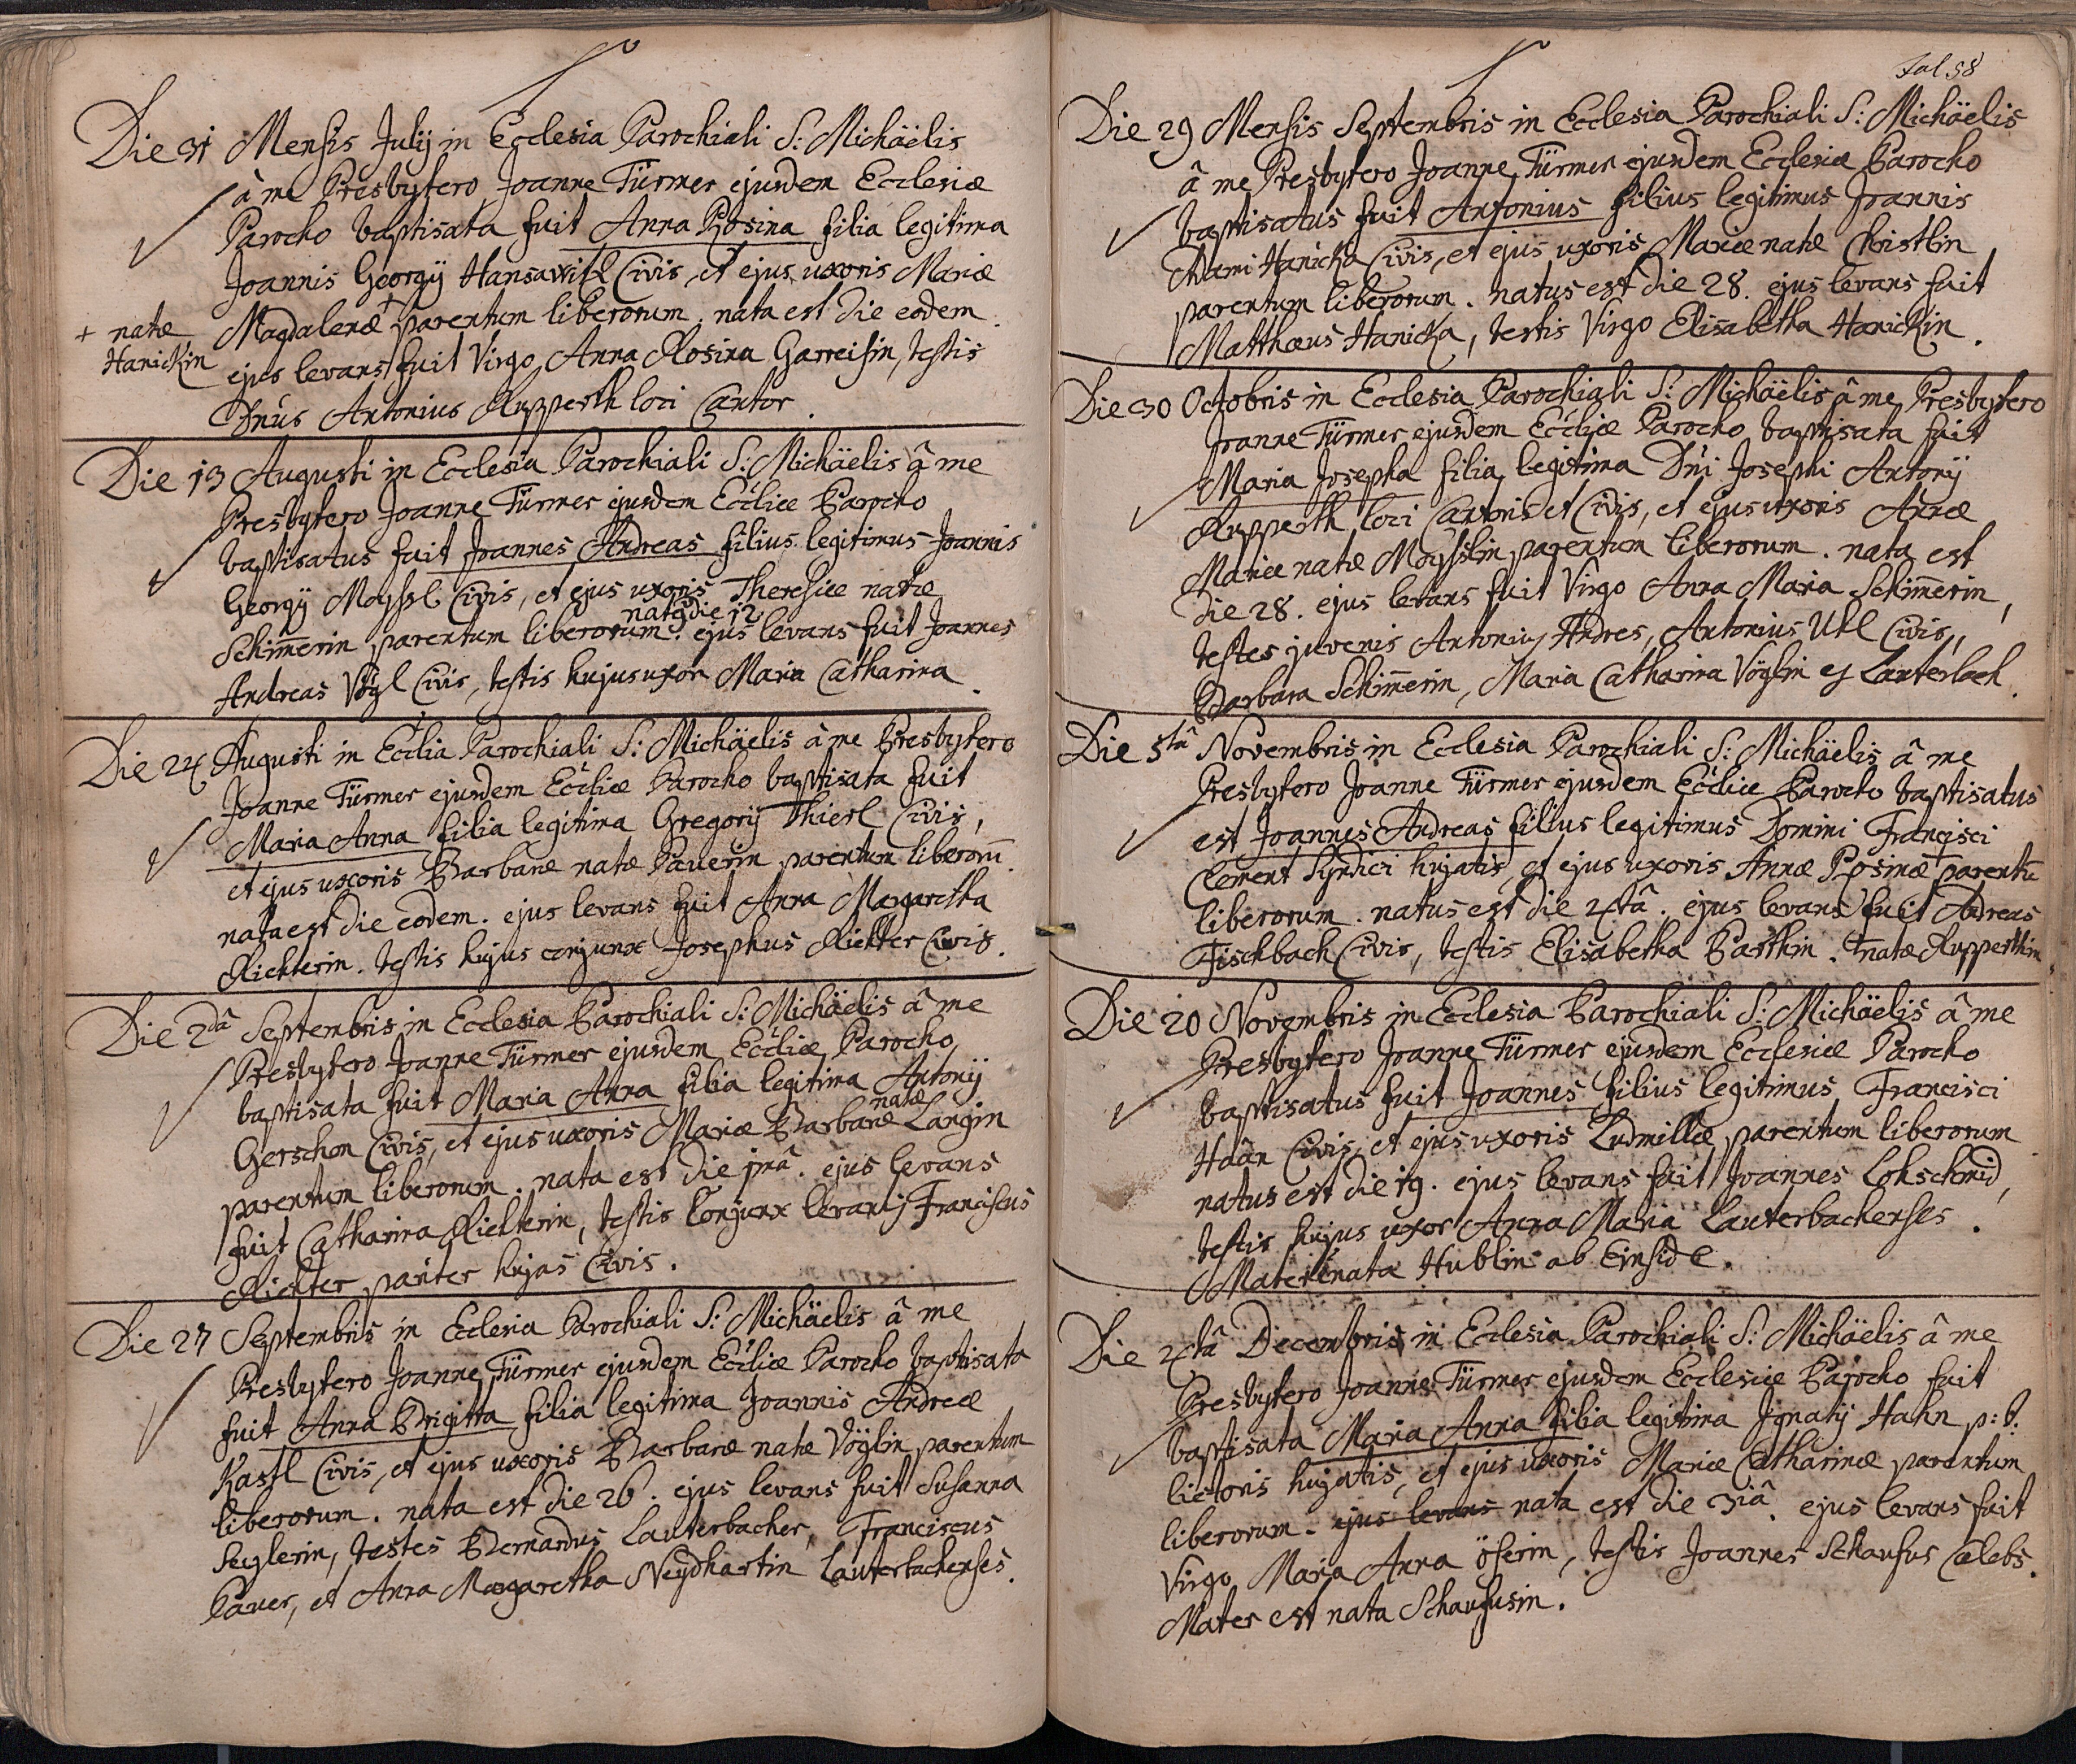 Die 31 Mensis Julij in Ecclesia Parochiali S: Michäelis
â me Presbytero Joanne Türmer ejusdem Ecclesiæ
Parocho baptisata fuit Anna Rosina filia legitima
Joannis Georgij Hansawitl Civis, et ejus uxoris Mariæ
+ natæ Magdalenæ + parentum liberorum. nata est die eodem.
Hanickin ejus levans fuit Virgo Anna Rosina Garreisin, testis
Dnus Antonius Rupperth loci Cantor.
Die 13 Augusti in Ecclesia Parochiali S: Michäelis â me
Presbytero Joanne Türmer ejusdem Eccliæ Parocho
baptisatus fuit Joannes Andreas filius legitimus Joannis
Georgij Moyssl Civis, et ejus uxoris Theresiæ natæ
natq die 12
Schim̄erin parentum liberorum. ejus levans fuit Joannes
Andreas Vögl Civis, testis hujus uxor Maria Catharina.
Die 24 Augusti in Ecclia Parochiali S: Michäelis â me Presbytero
Joanne Türmer ejusdem Eccliæ Parocho baptisata fuit
Maria Anna filia legitima Gregorij Thierl Civis,
et ejus uxoris Barbaræ natæ Pauerin parentum liberorū.
nata est die eodem. ejus levans fuit Anna Margaretha
Richterin. testis hujus conjunx Josephus Richter Civis.
Die 2dâ Septembris in Ecclesia Parochiali S: Michäelis â me
Presbytero Joanne Türmer ejusdem Eccliæ Parocho
baptisata fuit Maria Anna filia legitima Antonij
natæ
Gerschon Civis, et ejus uxoris Mariæ Barbaræ Langin
parentum liberorum. nata est die jmâ. ejus levans
fuit Catharina Richterin, testis Conjunx levantis Franciscus
Richter pariter hujas Civis.
Die 27 Septembris in Ecclesia Parochiali S: Michäelis â me
Presbytero Joanne Türmer ejusdem Eccliæ Parocho baptisata
fuit Anna Brigitta filia legitima Joannis Andreæ
Kastl Civis, et ejus uxoris Barbaræ natæ Vöglin parentum
liberorum. nata est die 26. ejus levans fuit Susanna
Seglerin, testes Bernardus Lauterbacher, Franciscus
Pauer, et Anna Margaretha Neydhartin Lauterbachenses.
Fol 58
Die 29 Mensis Septembris in Ecclesia Parochiali S: Michäelis
â me Presbytero Joanne Türmer ejusdem Ecclesiæ Parocho
baptisatus fuit Antonius filius legitimus Joannis
Adami Hanicka Civis, et ejus uxoris Mariæ natæ Christlin
parentum liberorum. natus est die 28. ejus levans fuit
Matthæus Hanicka, testis Virgo Elisabetha Hanickin.
Die 30 Octobris in Ecclesia Parochiali S: Michäelis â me Presbytero
Joanne Türmer ejusdem Eccliæ Parocho baptisata fuit
Maria Josepha filia legitima Dni Josephi Antonij
Rupperth loci Cantoris et Civis, et ejus uxoris Annæ
Mariæ natæ Moysslin parentum liberorum. nata est
die 28. ejus levans fuit Virgo Anna Maria Schim̄erin,
testes juvenis Antonius Andres, Antonius Utl Civis,
Barbara Schim̄erin, Maria Catharina Vöglin ex Lauterbach.
Die 5tâ Novembris in Ecclesia Parochiali S: Michäelis â me
Presbytero Joanne Türmer ejusdem Eccliæ Parocho baptisatus
est Joannes Andreas filius legitimus Domini Francisci
Clement Syndici hujatis, et ejus uxoris Annæ Rosinæ + parentū
liberorum. natus est die 4tâ. ejus levans fuit Andreas
Fischbach Civis, testis Elisabetha Barthin. + natæ Rupperthin
Die 20 Novembris in Ecclesia Parochiali S: Michäelis â me
Presbytero Joanne Türmer ejusdem Ecclesiæ Parocho
baptisatus fuit Joannes filius legitimus Francisci
Haân Civis, et ejus uxoris Ludmillæ parentum liberorum
natus est die 19. ejus levans fuit Joannes Lohschmid,
testis hujus uxor Anna Maria Lauterbachenses.
Mater nata Hublin ab Einsidl.
Die 4tâ Decembris in Ecclesia Parochiali S: Michäelis â me
Presbytero Joanne Türmer ejusdem Ecclesiæ Parocho fuit
baptisata Maria Anna filia legitima Ignatij Hahn p: t:
lictoris hujatis, et ejus uxoris Mariæ Catharinæ parentum
liberorum. ejus levans nata est die 3iâ. ejus levans fuit
Virgo Maria Anna Öserin, testis Joannes Schaufus Cælebs.
Mater est nata Schaufusin.